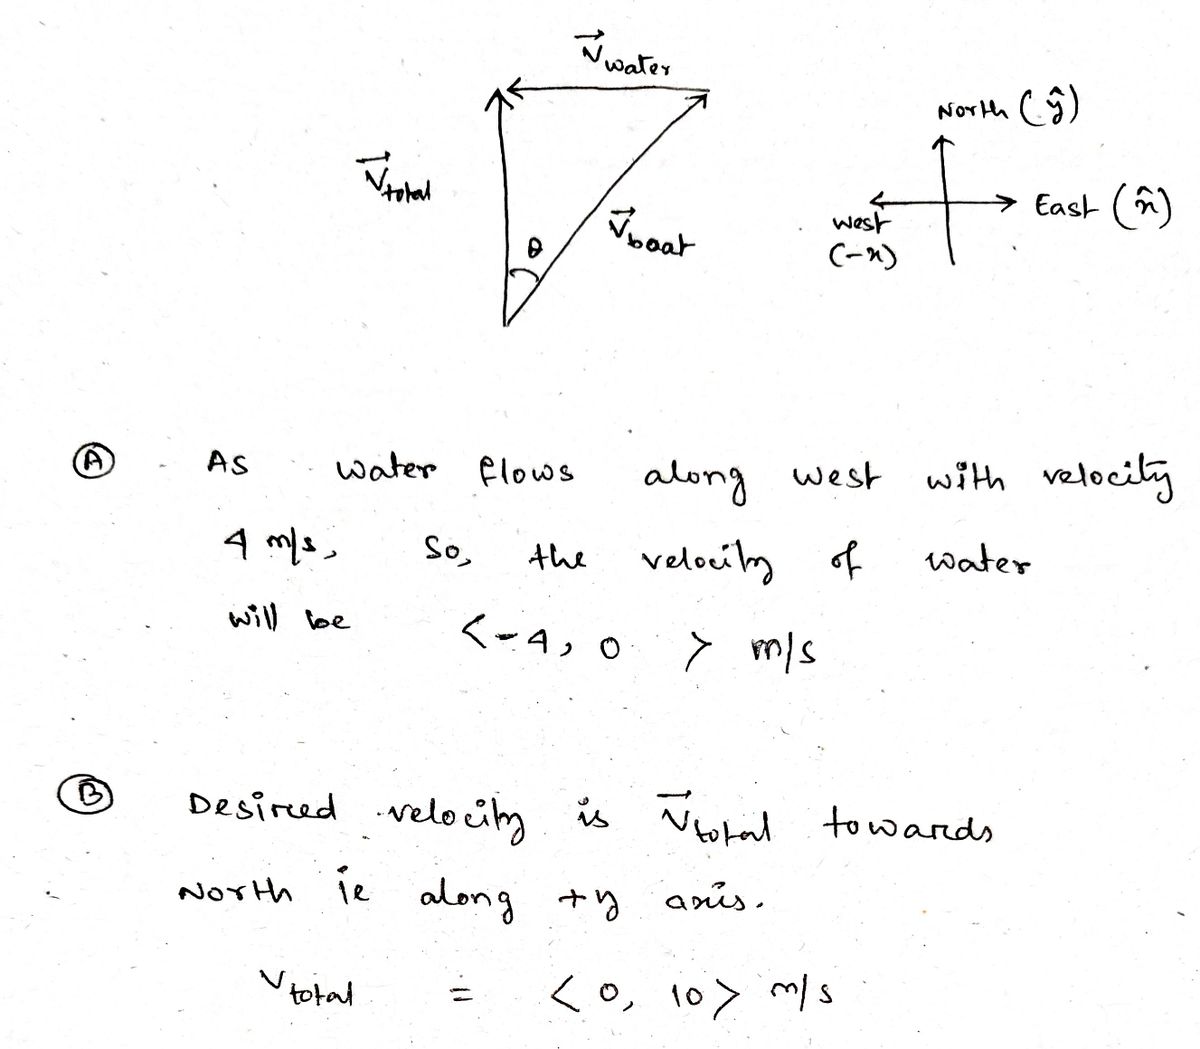 V⃗water
North (ŷ)
V⃗total
East (x̂)
West
(-x)
V⃗boat
θ
Ⓐ As water flows along west with velocity
4 m/s, So, the velocity of water
will be <-4, 0 > m/s
Ⓑ Desired velocity is V⃗total towards
North ie along +y axis.
Vtotal = < 0, 10> m/s